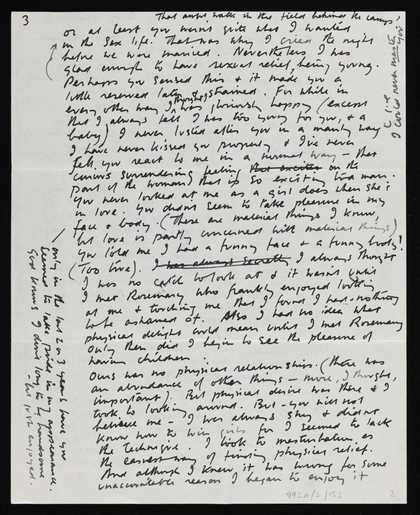 3
That awful walk in the field behind the camps,
or at least you weren't quite what I wanted
in the sex life. That was why I cried the night
before we were married. Nevertheless I was
glad enough to have sexual relief, being young.
Perhaps you sensed this & it made you a
little reserved later & strained. For while in
every other way I was gloriously happy (except
that I always felt I was too young for you, & a
baby) I never lusted after you in a manly way
I have never kissed you properly & I've never
felt you react to me in a normal way – that
curious surrendering feeling that exciter on the
part of the woman that is so exciting to a man.
You never looked at me as a girl does when she's
in love. You didn't seem to take pleasure in my
face & body. (These are material things I know,
but love is partly concerned with material things)
You told me I had a funny face & a funny body!
(Too true). I was always secretly I always thought
I was no to look at & it wasn't until
I met Rosemary who frankly enjoyed looking
at me & touching me that I found I had nothing
to be ashamed of. Also I had no idea what
physical delight could mean until I met Rosemary
Only then did I begin to see the pleasure of
having children.
Ours was no physical relationship. (There was
an abundance of other things – more, I thought,
important). But physical desire was there & I
took to looking around. But – you will not
believe me – I was always shy & didn't
know how to win girls for I seemed to lack
the technique. I took to masturbation as
the easiest way of finding physical relief.
And although I knew it was wrong for some
unaccountable reason I began to enjoy it
i.e.
I could never master you
only in the last 2 or 3 years have you
seemed to take pride in my appearance.
God knows I don't long to be handsome
– but just enjoyed.
9920/2/152
2